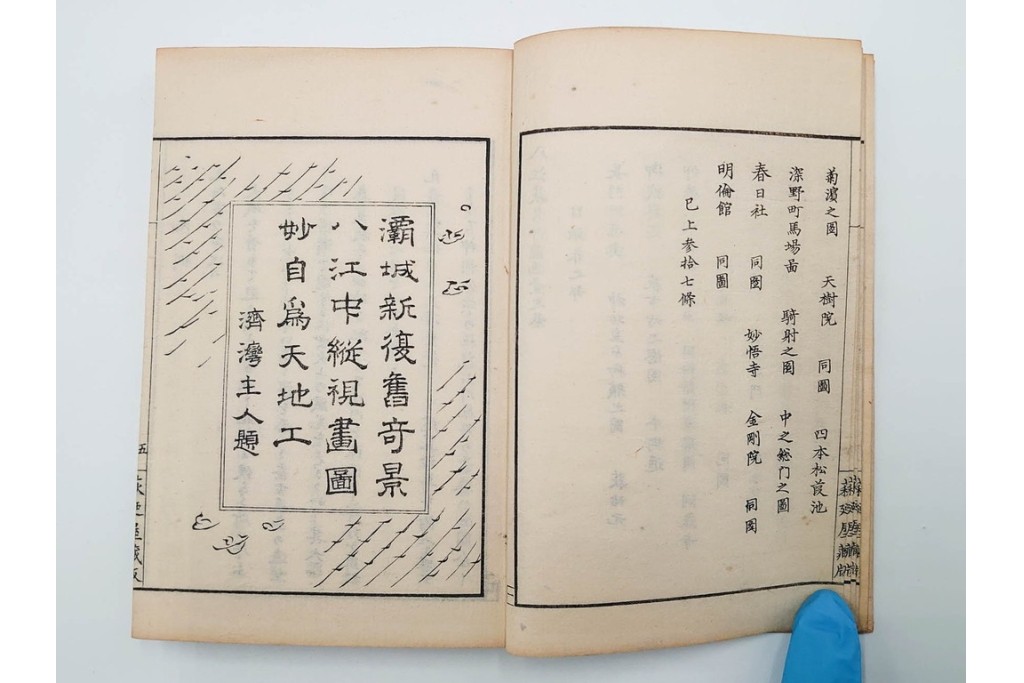 菊濱之図　天樹院　同圖　四本松葭池
深野町馬場図　騎射之図　中之総门之圖
春日社　同圖　妙悟寺　金剛院　同図
明倫館　同圖
已上參拾七條
灞城新復舊奇景
八江中縱視畫圖
妙自爲天地工
濟灣主人題
五